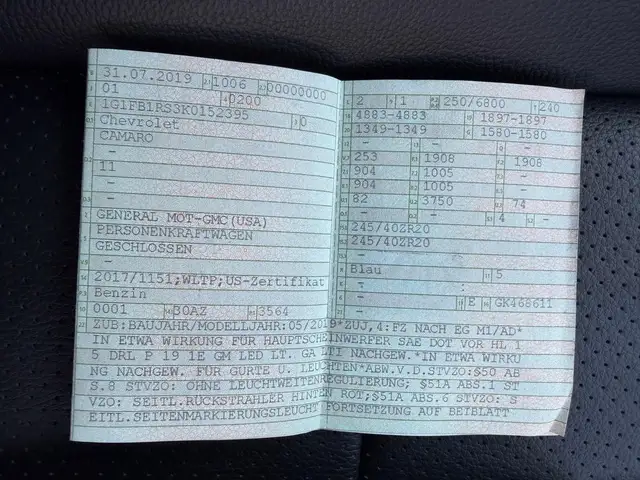 31.07.2019 1006 00000000
01 0200
1G1FB1RS3K0152395 0
Chevrolet
CAMARO
–
11
–
–
GENERAL MOT-GMC(USA)
PERSONENKRAFTWAGEN
GESCHLOSSEN
–
2017/1151;WLTP;US-Zertifikat
Benzin
0001 30AZ 3564
2 1 250/6800 240
4883-4883 1897-1897
1349-1349 1580-1580
– – –
253 1908 1908
904 1005 –
904 1005 –
82 3750 74
– – 4 –
245/40ZR20
245/40ZR20
–
Blau 5
–
– E GK468611
ZUB:BAUJAHR/MODELLJAHR:05/2019*ZUJ,4:FZ NACH EG M1/AD*
IN ETWA WIRKUNG FÜR HAUPTSCHEINWERFER SAE DOT VOR HL 1
5 DRL P 19 1E GM LED LT. GA LTI NACHGEW.*IN ETWA WIRKU
NG NACHGEW. FÜR GURTE U. LEUCHTEN*ABW.V.D.STVZO:§50 AB
S.8 STVZO: OHNE LEUCHTWEITENREGULIERUNG; §51A ABS.1 ST
VZO: SEITL.RÜCKSTRAHLER HINTEN ROT;§51A ABS.6 STVZO: S
EITL.SEITENMARKIERUNGSLEUCHT FORTSETZUNG AUF BEIBLATT